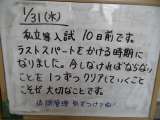 1/31(水)
私立専入試 10日前です。
ラストスパートをかける時期に
なりました。今しなければならない
ことを1つずつクリアしていくこと
こそが大切なことです。
体調管理 気をつけてね!